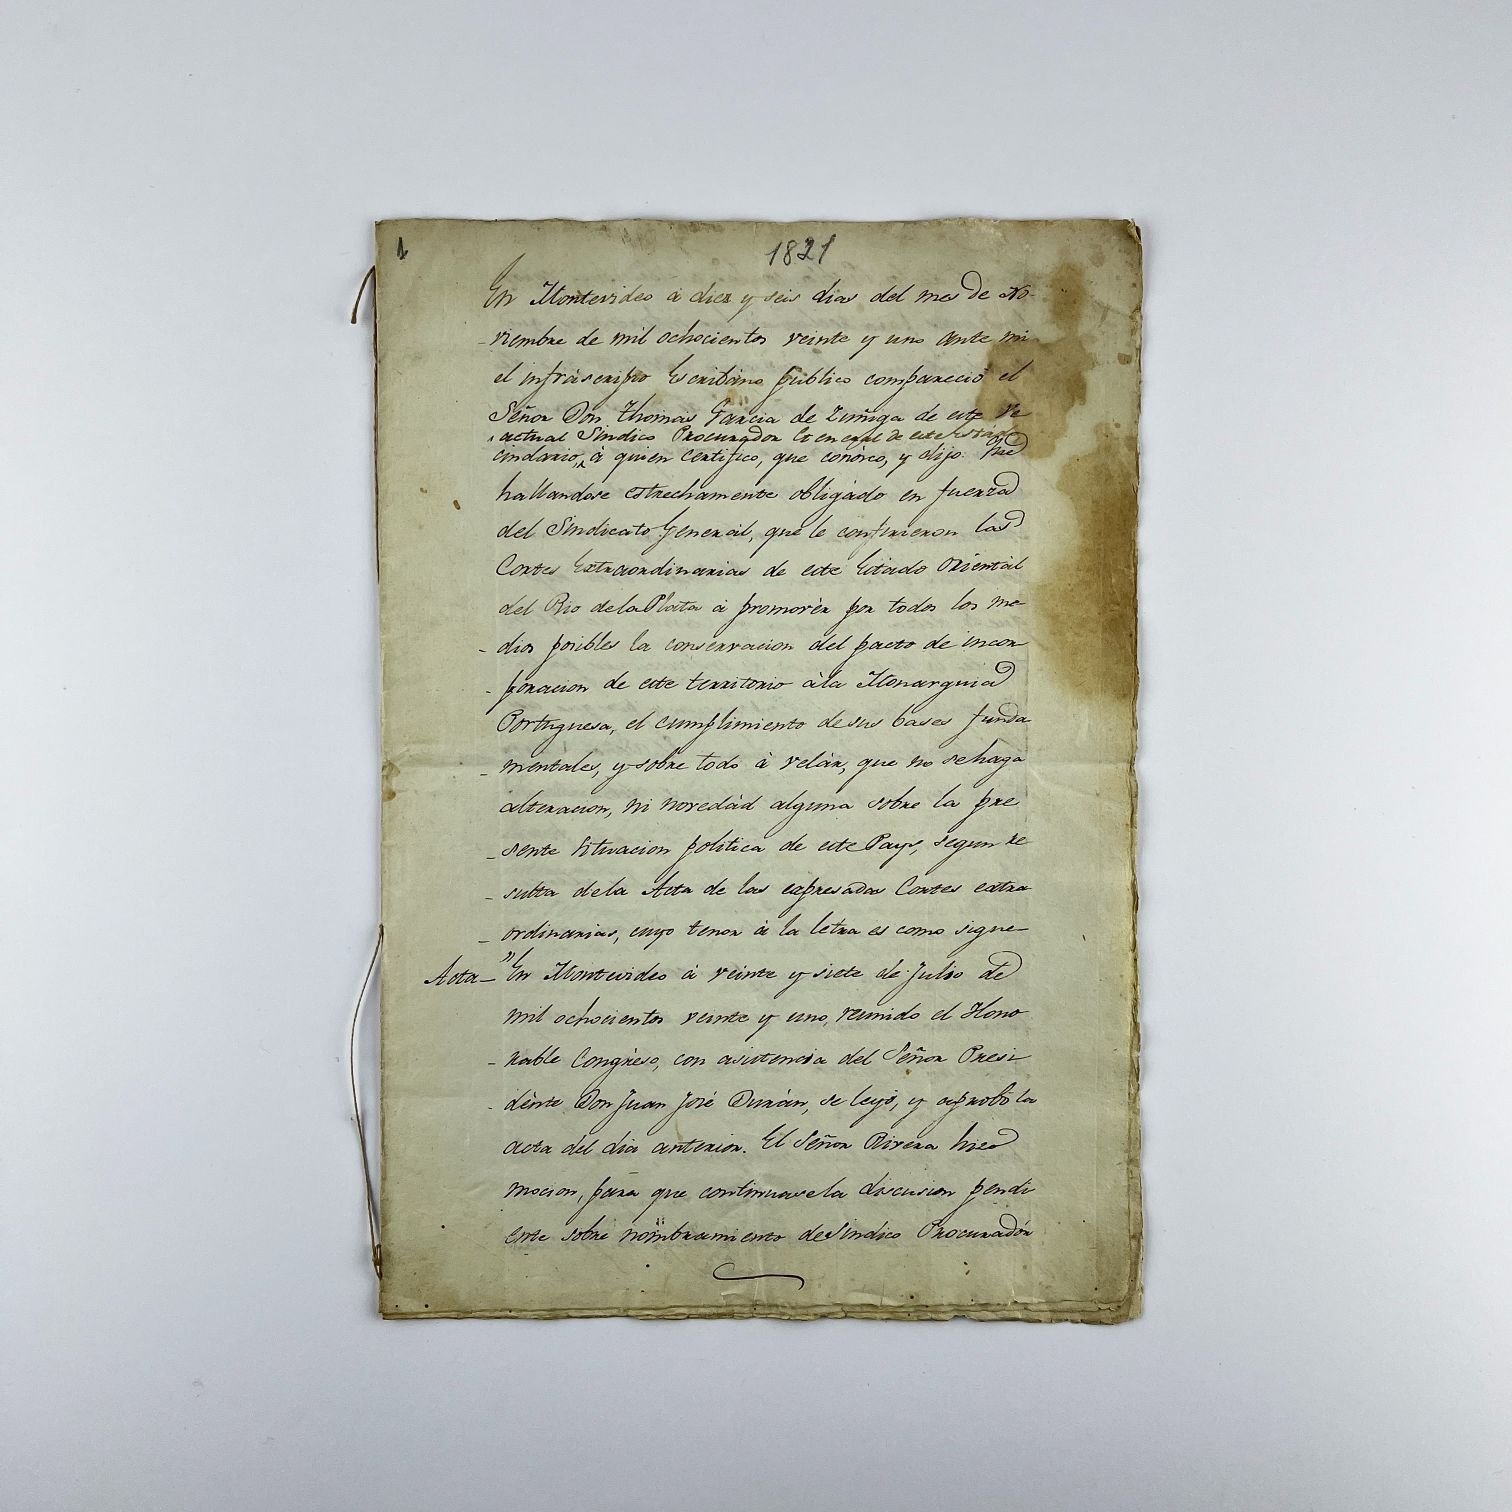 1
1821
En Montevideo à diez y seis dias del mes de No-
-viembre de mil ochocientos veinte y uno ante mi
el infrascripto Escribano publico compareció el
Señor Don Thomas Garcia de Zuñiga de este Ve
actual Sindico Procurador General de este Estado
cindario, à quien certifico, que conozco, y dijo: Que
hallandose estrechamente obligado en fuerza
del Sindicato General, que le confirieron las
Cortes Extraordinarias de este Estado Oriental
del Rio dela Plata à promovèr por todos los me
-dios posibles la conservacion del pacto de incor
-poracion de este territorio àla Monarquia
Portuguesa, el cumplimiento de sus bases funda
-mentales, y sobre todo à velàr, que no se haga
alteracion, ni novedàd alguna sobre la pre
-sente situacion politica de este Pays, segun re
-sulta dela Acta de las expresadas Cortes extra
-ordinarias, cuyo tenor à la letra es como sigue—
Acta— "En Montevideo à veinte y siete de Julio de
mil ochocientos veinte y uno, reunido el Hono
-rable Congrèso, con asistencia del Señor Presi
-dènte Don Juan José Duràn, se leyó, y aprobó la
acta del dia anterior. El Señor Rivera hizo
mocion, para que continuase la discusion pendi
ente sobre nombramiento de Sindico Procuradòr